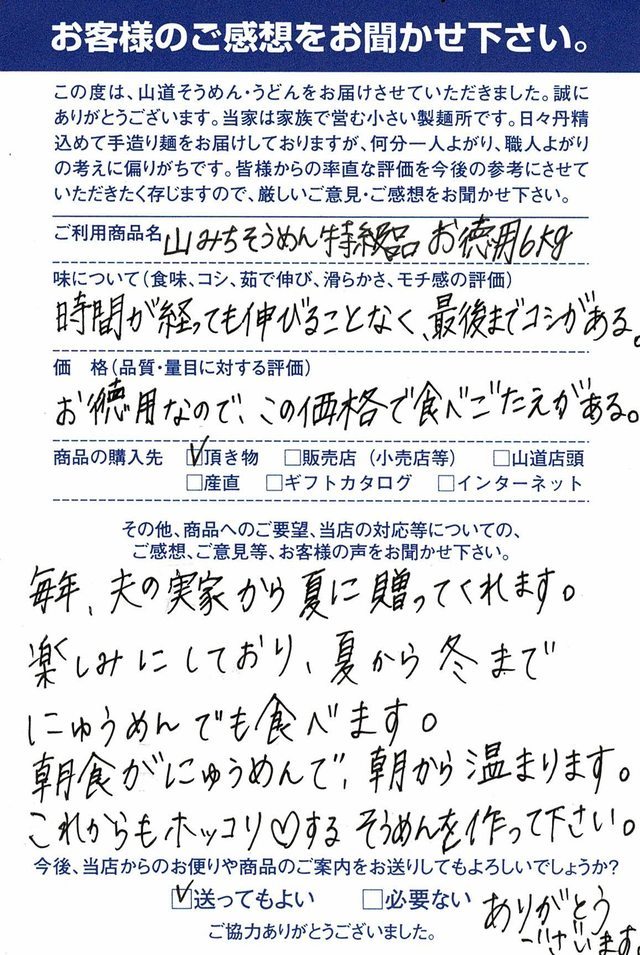 お客様のご感想をお聞かせ下さい。
この度は、山道そうめん・うどんをお届けさせていただきました。誠に
ありがとうございます。当家は家族で営む小さい製麺所です。日々丹精
込めて手造り麺をお届けしておりますが、何分一人よがり、職人よがり
の考えに偏りがちです。皆様からの率直な評価を今後の参考にさせて
いただきたく存じますので、厳しいご意見・ご感想をお聞かせ下さい。
ご利用商品名 山みちそうめん特級品 お徳用6kg
味について(食味、コシ、茹で伸び、滑らかさ、モチ感の評価)
時間が経っても伸びることなく、最後までコシがある。
価 格(品質・量目に対する評価)
お徳用なので、この価格で食べごたえがある。
商品の購入先 ☑頂き物 □販売店(小売店等) □山道店頭
□産直 □ギフトカタログ □インターネット
その他、商品へのご要望、当店の対応等についての、
ご感想、ご意見等、お客様の声をお聞かせ下さい。
毎年、夫の実家から夏に贈ってくれます。
楽しみにしており、夏から冬まで
にゅうめんでも食べます。
朝食がにゅうめんで、朝から温まります。
これからもホッコリ♡する そうめんを作って下さい。
今後、当店からのお便りや商品のご案内をお送りしてもよろしいでしょうか?
☑送ってもよい □必要ない ありがとう
ございます。
ご協力ありがとうございました。